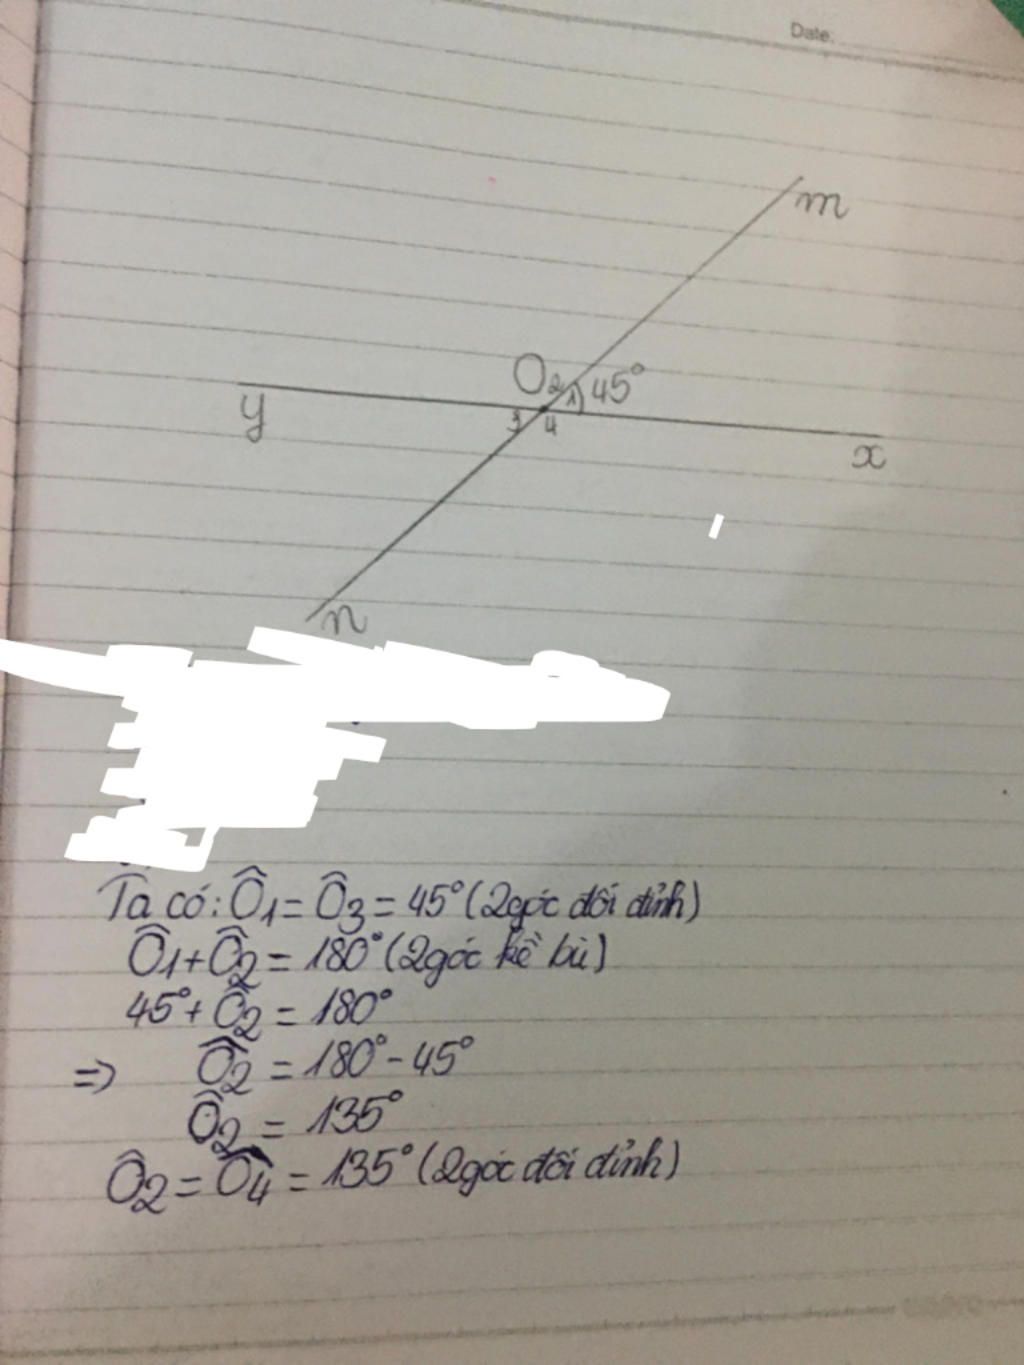 Date:
m
O2 1 45°
y
3 4
x
n
Ta có: Ô1 = Ô3 = 45° (2góc đối đỉnh)
Ô1 + Ô2 = 180° (2góc kề bù)
45° + Ô2 = 180°
=> Ô2 = 180° - 45°
Ô2 = 135°
Ô2 = Ô4 = 135° (2góc đối đỉnh)